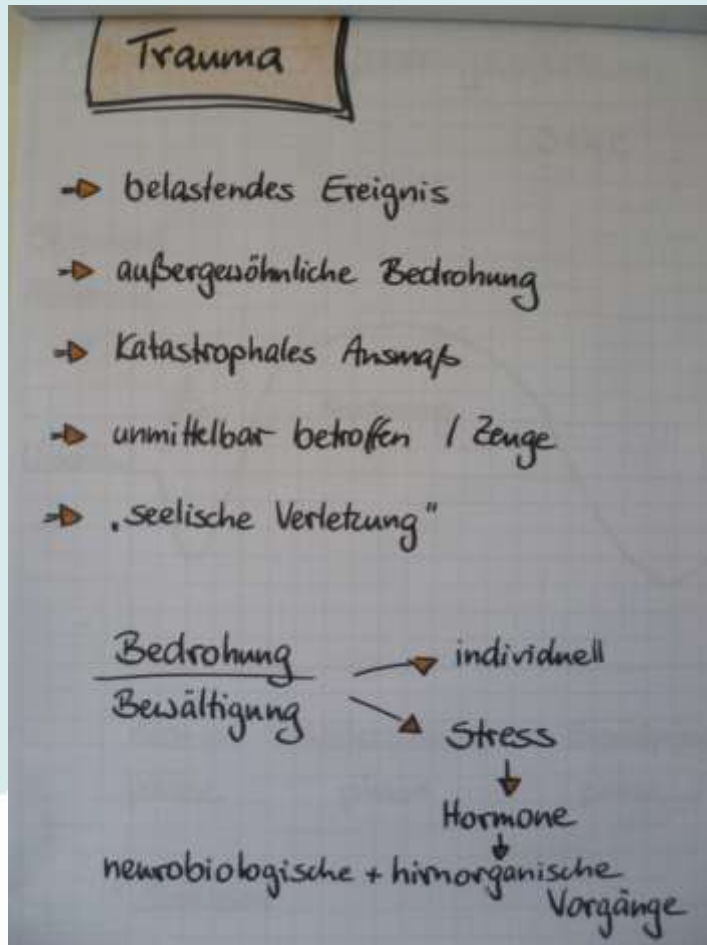 Trauma
belastendes Ereignis
außergewöhnliche Bedrohung
Katastrophales Ausmaß
unmittelbar betroffen / Zeuge
„seelische Verletzung“
Bedrohung
individuell
Bewältigung
Stress
Hormone
neurobiologische + hirnorganische
Vorgänge